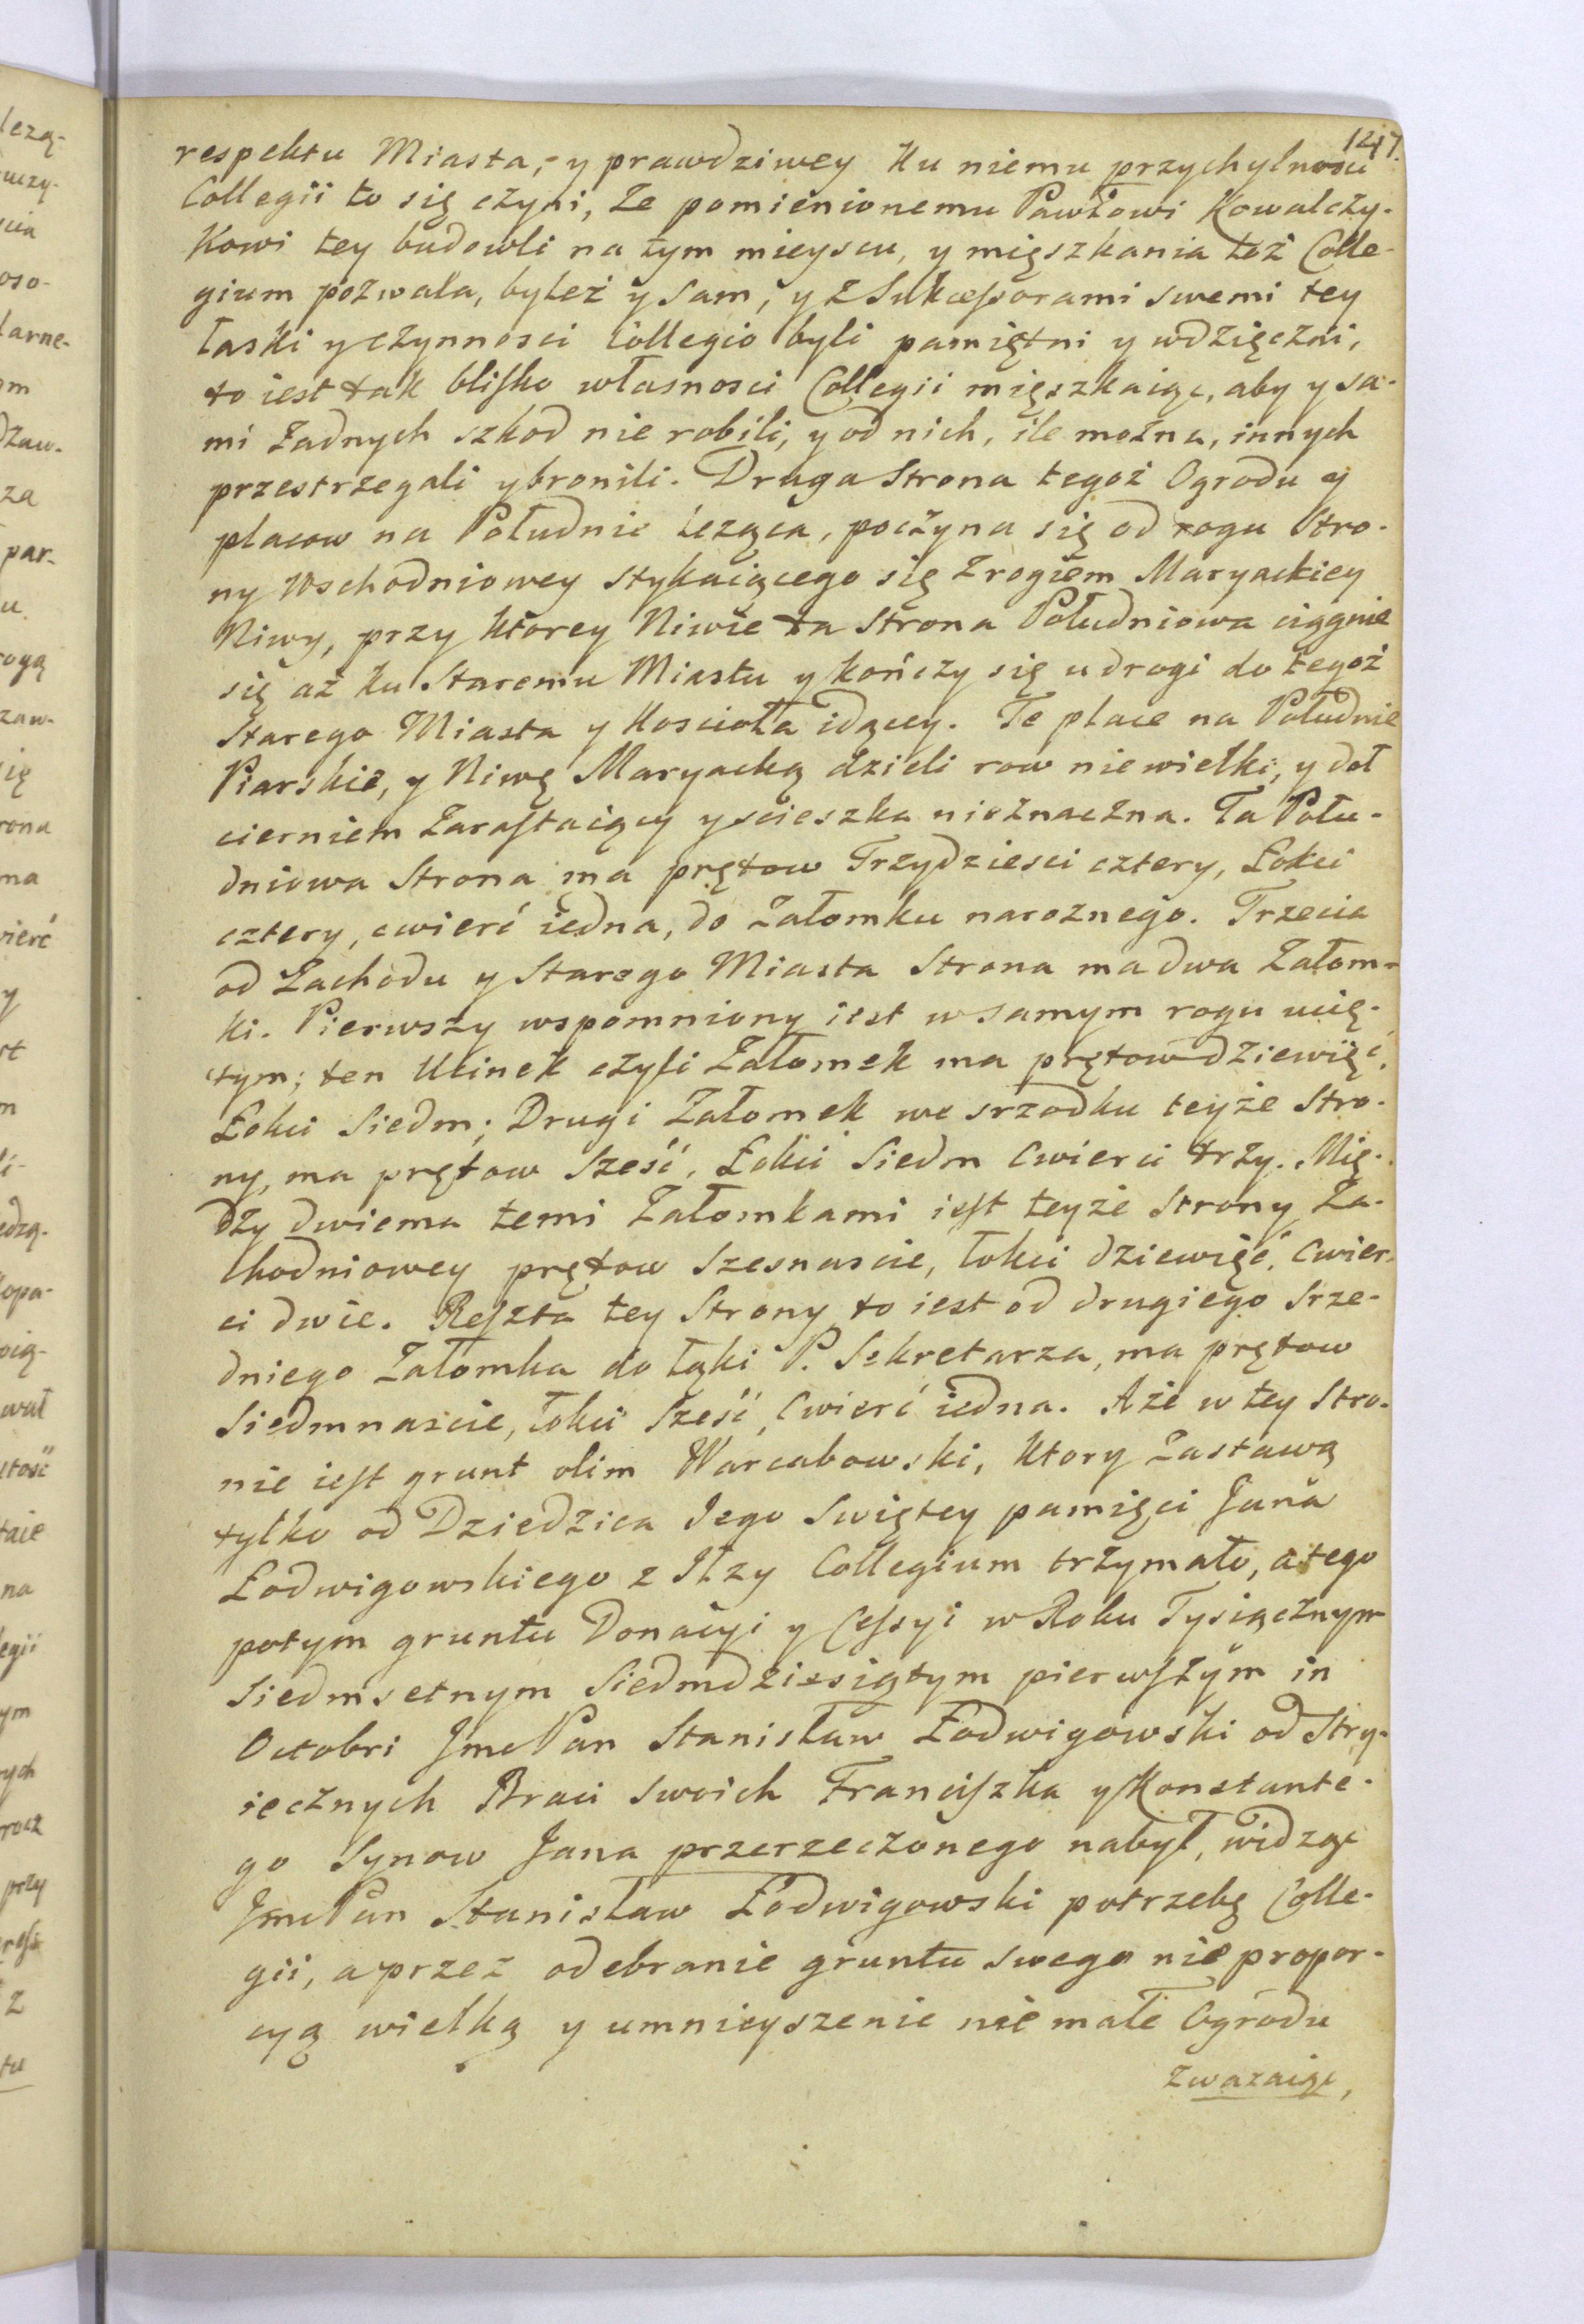 1247.
respektu Miasta, y prawdziwey ku niemu przychylnosci
Collegii to się czyni, że pomienionemu Pawłowi Kowalczy-
kowi tey budowli na tym mieyscu, y mięszkania też Colle-
gium pozwala, byleż y sam, y z Sukcessorami swemi tey
łaski y czynnosci Collegio byli pamiętni y wdzięczni,
to iest tak blisko własnosci Collegii mięszkaiąc, aby y sa-
mi żadnych szkod nie robili, y od nich, ile można, innych
przestrzegali y bronili. Druga Strona tegoż Ogrodu y
placow na Południe leząca, poczyna się od rogu Stro-
ny Wschodniowey stykaiącego się z rogiem Maryackiey
Niwy, przy ktorey Niwie ta Strona Południowa ciągnie
się aż ku Staremu Miastu y kończy się u drogi do tegoż
Starego Miasta y Koscioła idącey. Te place na Południe
Piarskie, y Niwę Maryacką dzieli row niewielki, y doł
cierniem zarastaiący y scieszka nieznaczna. Ta Połu-
dniowa Strona ma prętow Trzydziesci cztery, Łokci
cztery, cwierć iedna, do załomku narożnego. Trzecia
od Zachodu y Starego Miasta Strona ma dwa Załom-
ki. Pierwszy wspomniony iest w samym rogu ucię-
tym; ten Ucinek czyli Załomek ma prętow dziewięć,
Łokci Siedm; Drugi Załomek we srzodku teyże Stro-
ny, ma prętow Sześć, Łokci Siedm Cwierci trzy. Mię-
dzy dwiema temi Załomkami iest teyże Strony Za-
chodniowey prętow Szesnascie, łokci dziewięć, Cwier-
ci dwie. Reszta tey Strony to iest od drugiego Srze-
dniego Załomka do łąki P. Sekretarza, ma prętow
Siedmnascie, łokci Sześć, Cwierć iedna. A że w tey Stro-
nie iest grunt olim Warcabowski, ktory Zastawą
tylko od Dziedzica Jego Swiętey pamięci Jana
Łodwigowskiego z Iłzy Collegium trzymało, a tego
potym gruntu Donacyi y Cessyi w Roku Tysiącznym
Siedmsetnym Siedmdziesiątym pierwszym in
Octobri JmcPan Stanisław Łodwigowski od Stry-
iecznych Braci Swoich Franciszka y Konstante-
go Synow Jana przerzeczonego nabył, widząc
JmcPan Stanisław Łodwigowski potrzebę Colle-
gii, a przez odebranie gruntu swego niepropor-
cyą wielką y umnieyszenie nie małe Ogrodu
Zważaiąc,